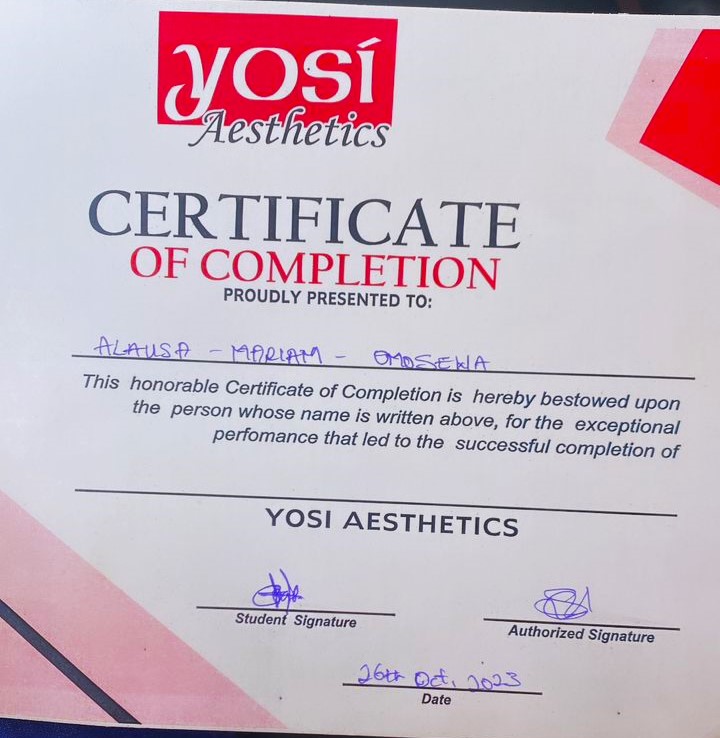 yosí
Aesthetics
CERTIFICATE
OF COMPLETION
PROUDLY PRESENTED TO:
ALAUSA - MARIAM - OMOSEWA
This honorable Certificate of Completion is hereby bestowed upon
the person whose name is written above, for the exceptional
perfomance that led to the successful completion of
YOSI AESTHETICS
Student Signature
Authorized Signature
26th Oct, 2023
Date